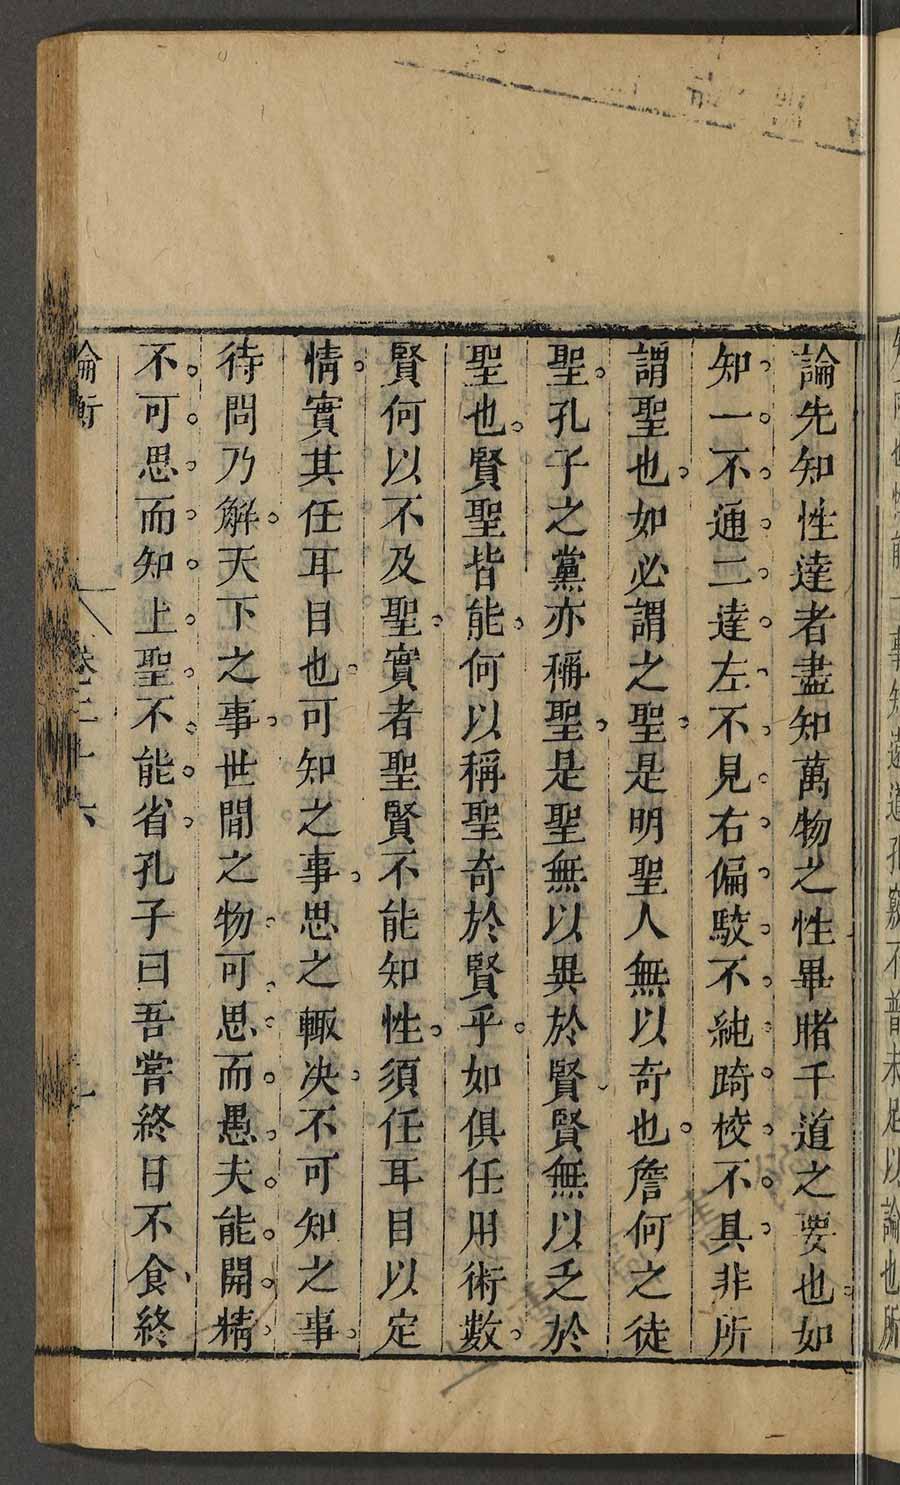 論先知性達者盡知萬物之性畢睹千道之要也如
知一不通二達左不見右偏駁不純踦校不具非所
謂聖也如必謂之聖是明聖人無以奇也詹何之徒
聖孔子之黨亦稱聖是聖無以異於賢賢無以乏於
聖也賢聖皆能何以稱聖奇於賢乎如俱任用術數
賢何以不及聖實者聖賢不能知性須任耳目以定
情實其任耳目也可知之事思之輒决不可知之事
待問乃解天下之事世間之物可思而愚夫能開精
不可思而知上聖不能省孔子曰吾嘗終日不食終
論衡 卷二十六 十